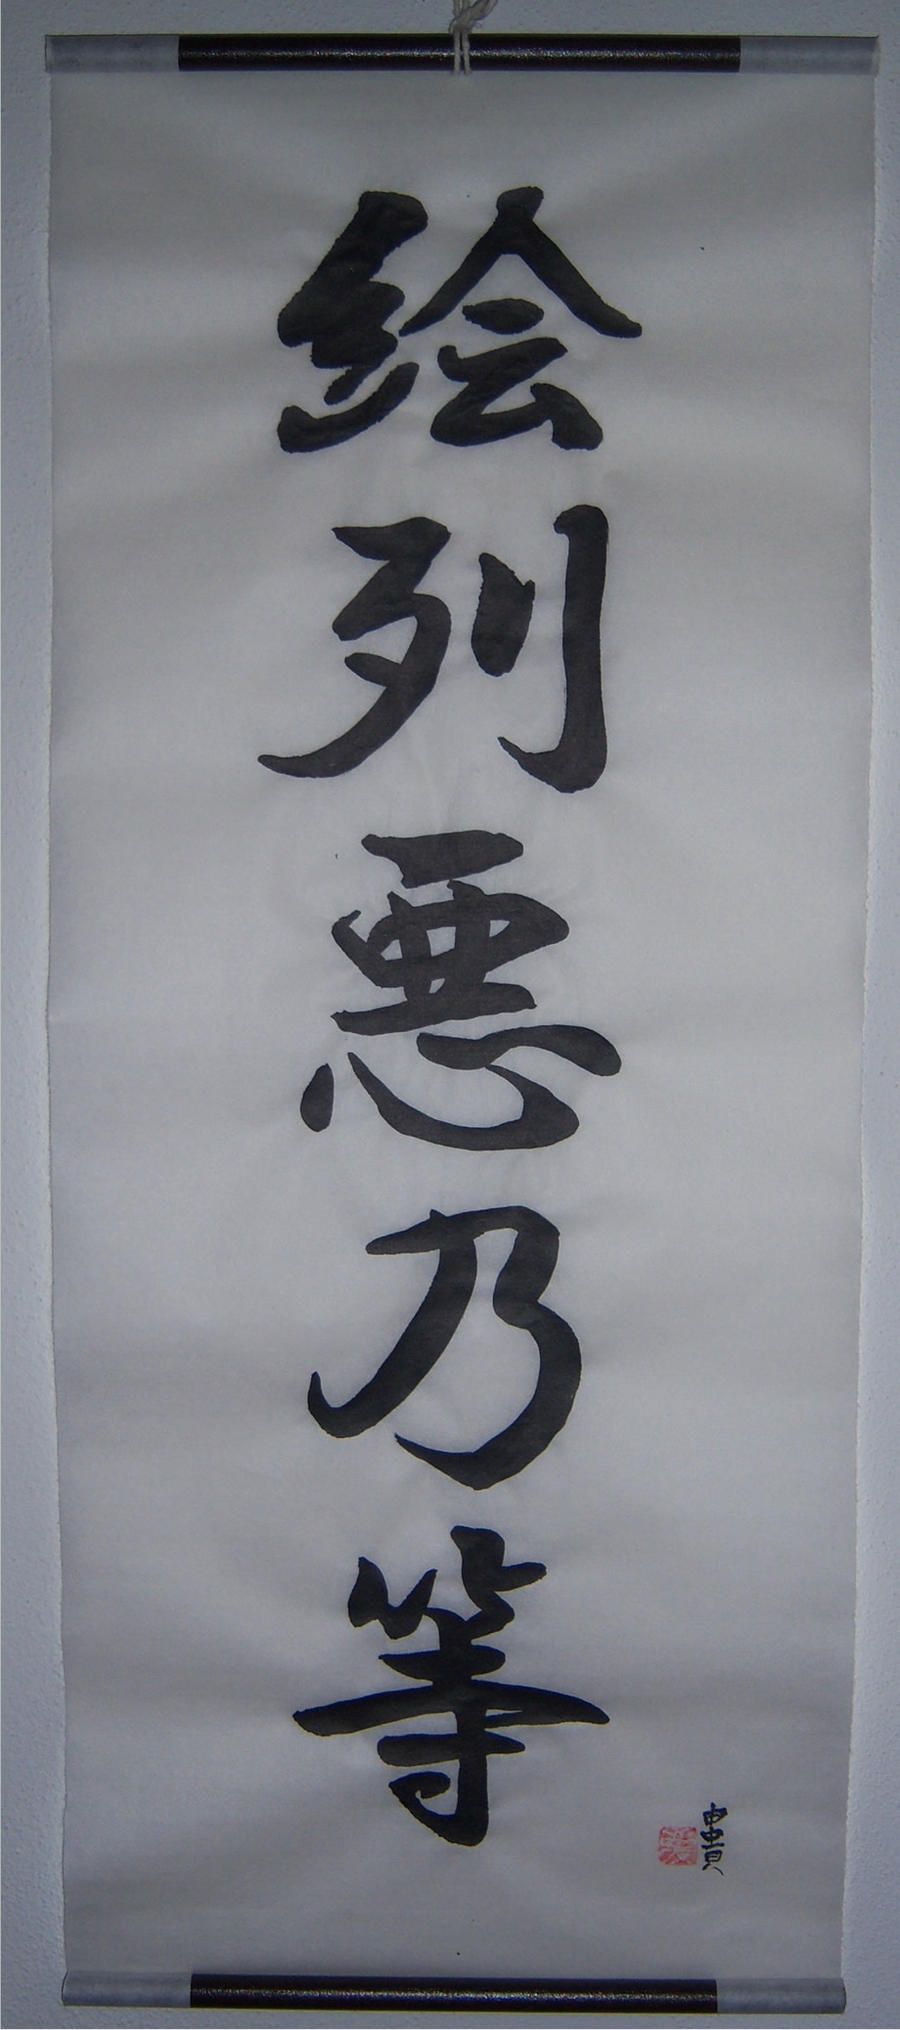 絵列悪乃等